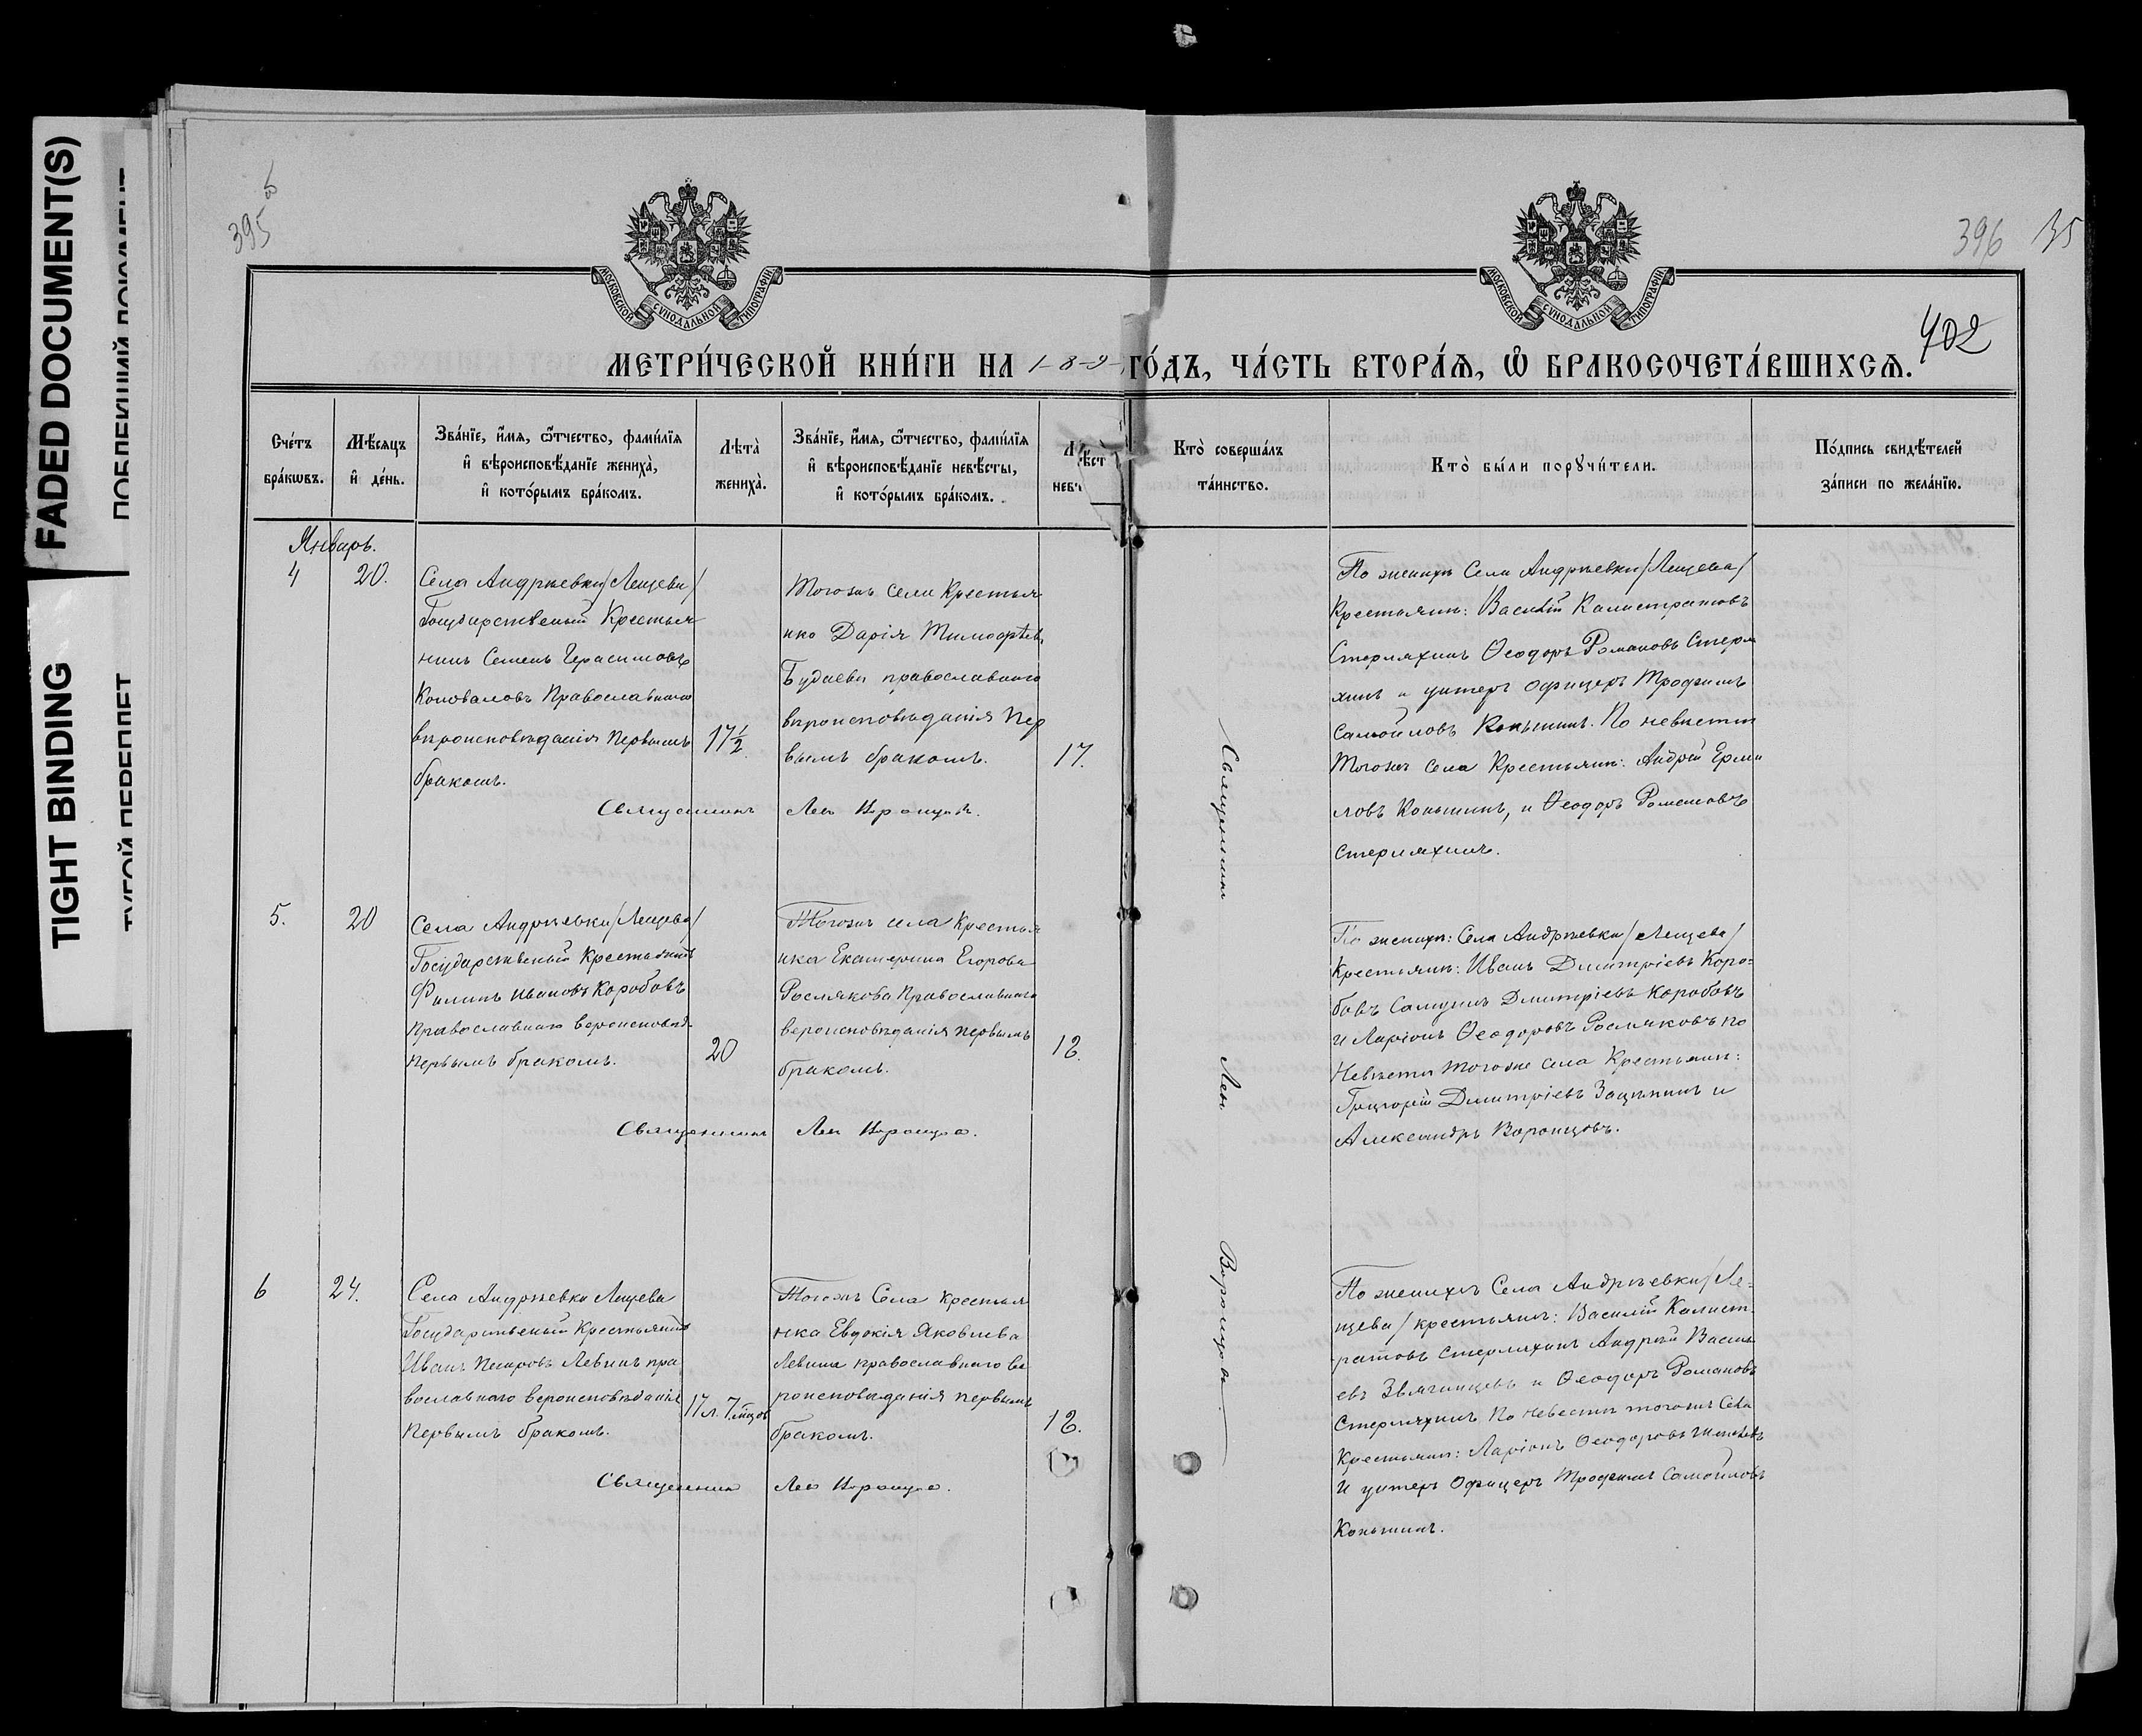 FADED DOCUMENT(S)
TIGHT BINDING
395 об
396
402
МОСКОВСКОЙ СѴНОДАЛЬНОЙ ТИПОГРАФІИ
МОСКОВСКОЙ СѴНОДАЛЬНОЙ ТИПОГРАФІИ
МЕТРИ́ЧЕСКОЙ КНИ́ГИ НА 1-8-9- ГО́ДЪ, ЧА́СТЬ ВТОРА́Ѧ, Ѽ БРАКОСОЧЕТА́ВШИХСѦ.
Сче́тъ
бра́кѡвъ.
Мѣ́сѧцъ
и҆ де́нь.
Зва́нїе, и҆́мѧ, ѻ҆́тчество, фами́лїѧ
и҆ вѣроисповѣ́данїе жениха̀,
и҆ кото́рымъ бра́комъ.
Лѣ́та̀
жениха̀.
Зва́нїе, и҆́мѧ, ѻ҆́тчество, фами́лїѧ
и҆ вѣроисповѣ́данїе невѣ́сты,
и҆ кото́рымъ бра́комъ.
Кто̀ соверша́лъ
та́инство.
Кто̀ бы́ли порꙋчи́тели.
По́дпись свидѣ́телей
за́писи по жела́нїю.
Январь.
4
20.
Села Андрѣевки/Лещева/
Государственый Крестья
нинъ Семенъ Герасимовъ
Коноваловъ Православнаго
вѣроисповѣданія Первымъ
бракомъ.
17½
Тогожъ села Крестья
нка Дарія Тимоѳѣев,
Будаева православнаго
вѣроисповѣданія Пер
вымъ бракомъ.
17.
Священникъ Лев Воронцовъ.
По женихѣ Села Андрѣевки/Лещева/
Крестьянин: Василій Калистратовъ
Стерляхинъ Ѳеодоръ Романовъ Стерля
хинъ и унтеръ офицеръ Трофимъ
Самойловъ Коньшинъ. По невѣстѣ
Тогожъ села Крестьянин: Андрей Ерми
ловъ Коньшинъ, и Ѳеодоръ Романовъ
Стерляхинъ.
5.
20
Села Андрѣевки/Лещева/
Государственый Крестьянинъ
Филипъ Ивановъ Коробовъ
православнаго вероисповѣд.
первымъ бракомъ.
20
Тогожъ села Крестья
нка Екатерина Егорова
Рослякова Православнаго
вероисповѣданія первымъ
бракомъ.
18.
Священникъ Лев Воронцов.
По женихѣ: Села Андрѣевки/Лещева/
Крестьянин: Иванъ Димитріевъ Коро=
бовъ Самуилъ Дмитріевъ Коробовъ
и Ларіонъ Ѳеодоровъ Росляковъ по
Невѣсты тогоже села Крестьянин:
Григорій Димитріевъ Зацѣпинъ и
Александръ Воронцовъ.
6
24.
Села Андрѣевки Лещева
Государственый Крестьянинъ
Иванъ Петровъ Левинъ пра
вославнаго вероисповѣданія
Первымъ бракомъ.
17 л. 7 мцов
Тогожъ Села Крестья
нка Евдокія Яковлева
Левина православнаго ве
роисповѣданія первымъ
бракомъ.
18.
Священник Лев Воронцов.
По женихѣ Села Андрѣевки/Ле=
щева/крестьянин: Василій Калист-
ратовъ Стерляхинъ Андрей Василь
евъ Звягинцевъ и Ѳеодоръ Романовъ
Стерляхинъ По невестѣ тогожъ Села
Крестьянин: Ларіонъ Ѳеодоровъ
и унтеръ Офицеръ Трофимъ Самойловъ
Коньшинъ.
Священник Лев Воронцов.